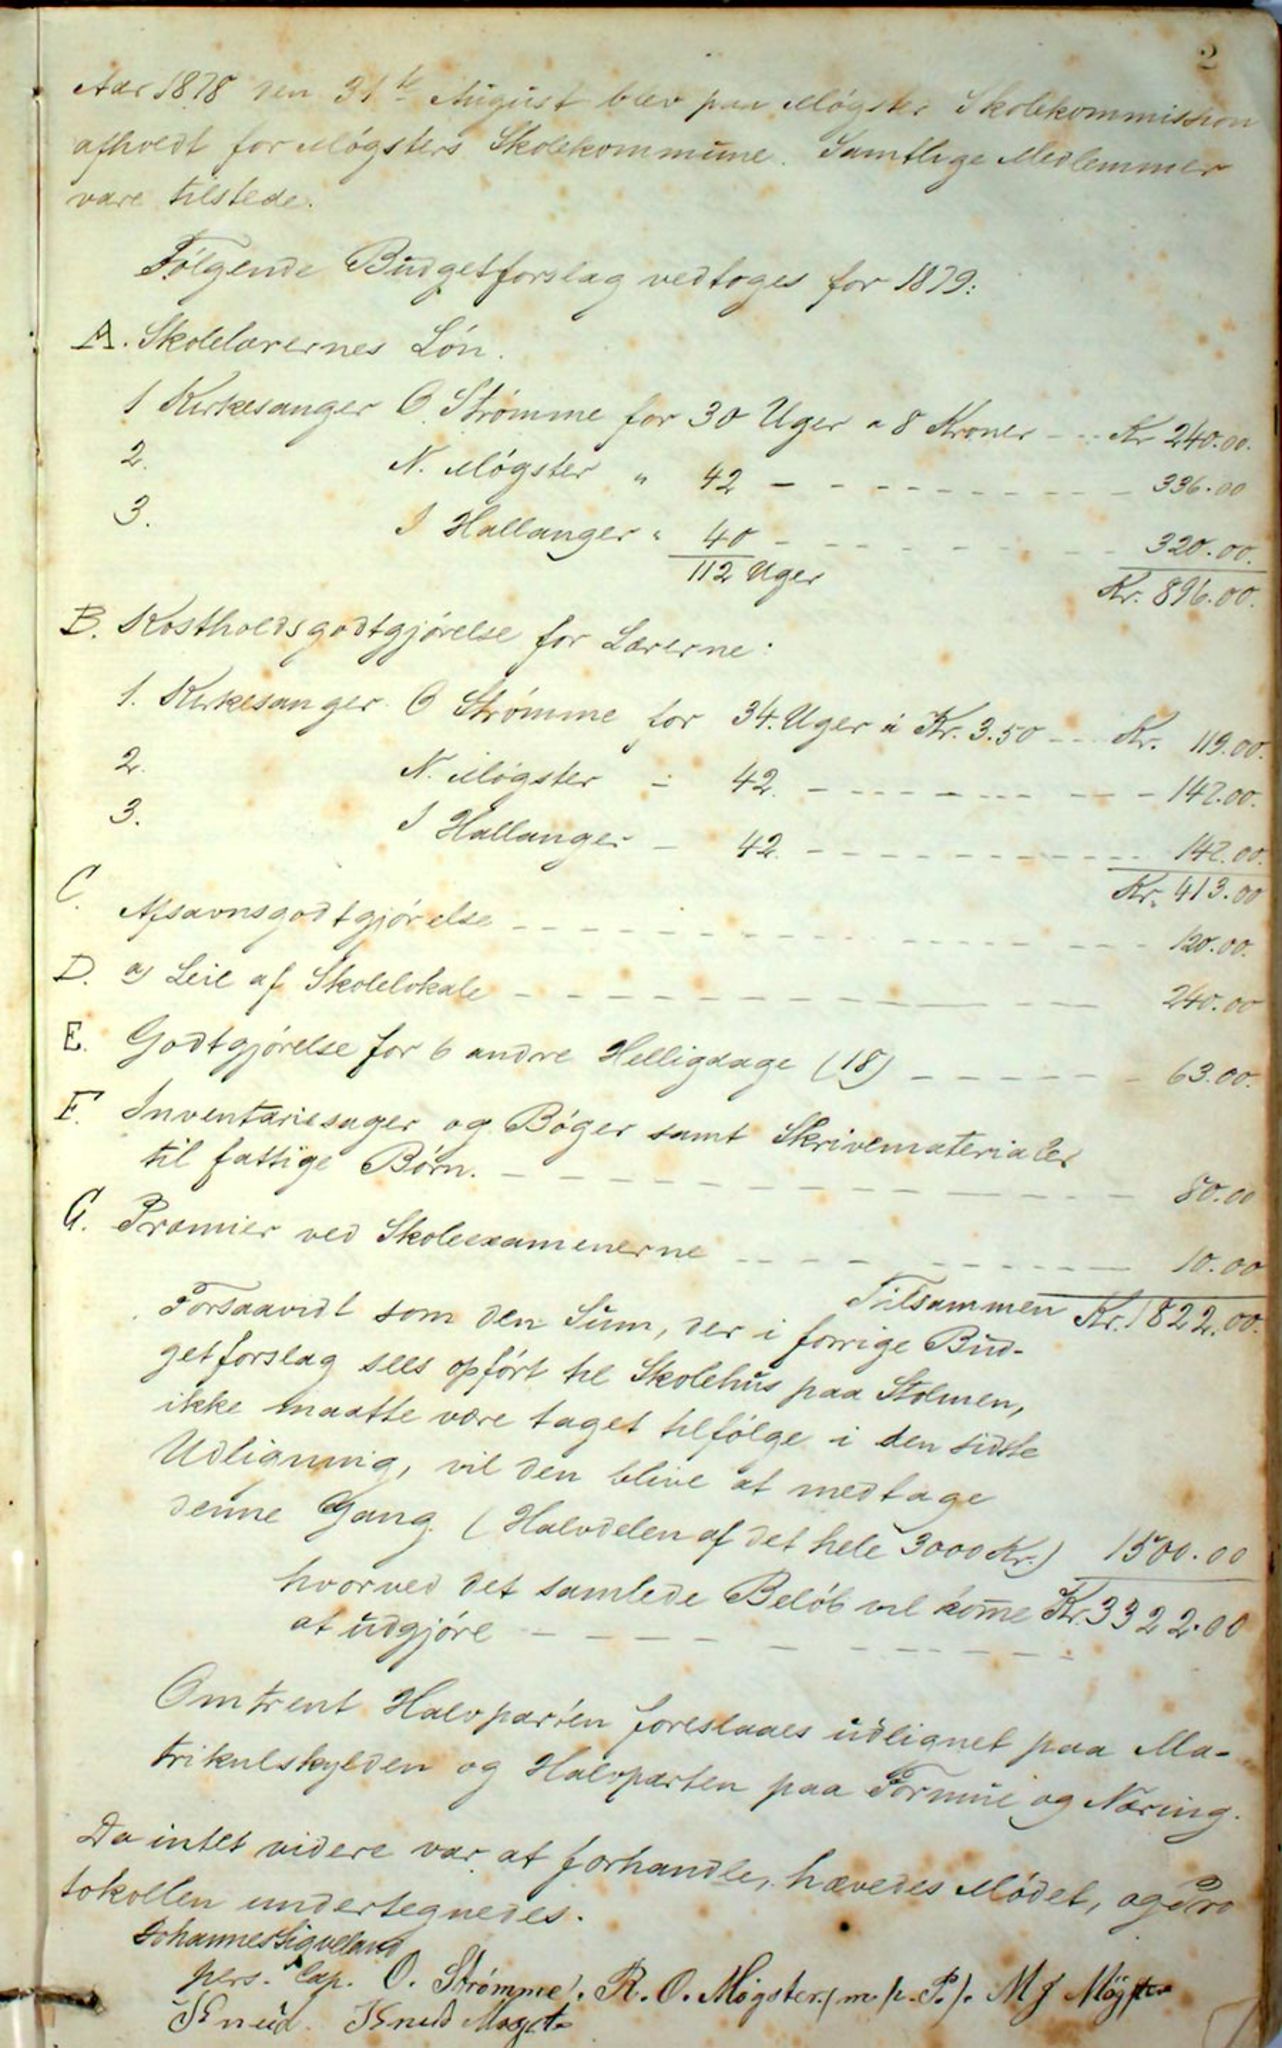 2
Aar 1878 den 31te August blev paa Møgster Skolekommission
afholdt for Møgsters Skolekommune. Samtlige Medlemmer
vare tilstede.
Følgende Budgetforslag vedtoges for 1879:
A. Skolelærernes Løn.
1 Kirkesanger O. Strømme for 30 Uger a 8 Kroner - - - Kr 240.00.
2. N. Møgster " 42 - - - - - - - - - - 336.00
3. I Hallanger " 40 - - - - - - - - - 320.00.
112 Uger Kr. 896.00.
B. Kostholdsgodtgjørelse for Lærerne:
1. Kirkesanger O Strømme for 34. Uger á Kr. 3.50 - - - Kr. 119.00.
2. N. Møgster - 42. - - - - - - - - - - 147.00.
3. I Hallanger - 42. - - - - - - - - - - 147.00.
Kr. 413.00
C. Afsavnsgodtgjørelse - - - - - - - - - - 120.00.
D. a) Leie af Skolelokale - - - - - - - - - - 240.00
E. Godtgjørelse for 6 andre Helligdage (18) - - - - - - 63.00.
F. Inventariesager og Bøger samt Skrivematerialer
til fattige Børn. - - - - - - - - - - 80.00
G. Præmier ved Skoleexamenerne - - - - - - - - 10.00
Tilsammen Kr. 1822.00.
Forsaavidt som den Sum, der i forrige Bud-
getforslag sees opført til Skolehus paa Stolmen,
ikke maatte være taget tilfølge i den sidste
Udligning, vil den blive at medtage
denne Gang. (Halvdelen af det hele 3000 Kr.) 1500.00
hvorved det samlede Beløb vil kom̅e Kr. 3322.00
at udgjøre - - - - - - - - - -
Omtrent Halvparten foreslaaes udlignet paa Ma-
trikulskylden og Halvparten paa Formue og Næring.
Da intet videre var at forhandle, hævedes Mødet, og Pro
tokollen undertegnedes.
Johannes Sigveland
pers. Cap. O. Strømme. R. O. Møgster (m. p. P.). M J Møgster
Knud Knud Møgster